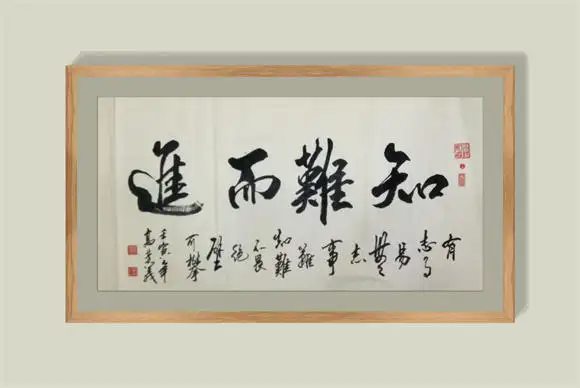 知難而進
有
志
易
無
志
事
難
知難
不畏
絕
壁
可攀
壬寅年